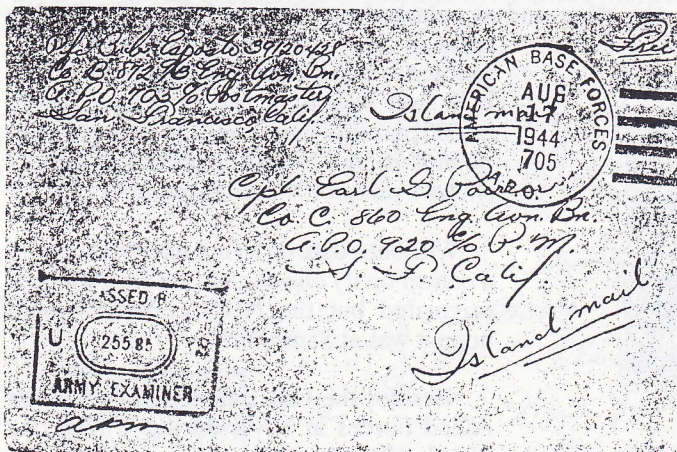 Free
Pfc. Caposto 39120428
Co B. 872 Eng. Avn. Bn.
A.P.O. 705 % Postmaster
San Francisco, Calif
Island mail
AMERICAN BASE FORCES
AUG
17
1944
705
A.P.O.
Cpl. Earl G
Co C. 860 Eng. Avn. Bn.
A.P.O. 920 c/o P.M.
S. F. Calif
Island mail
ASSED B
U S
25585
ARMY EXAMINER